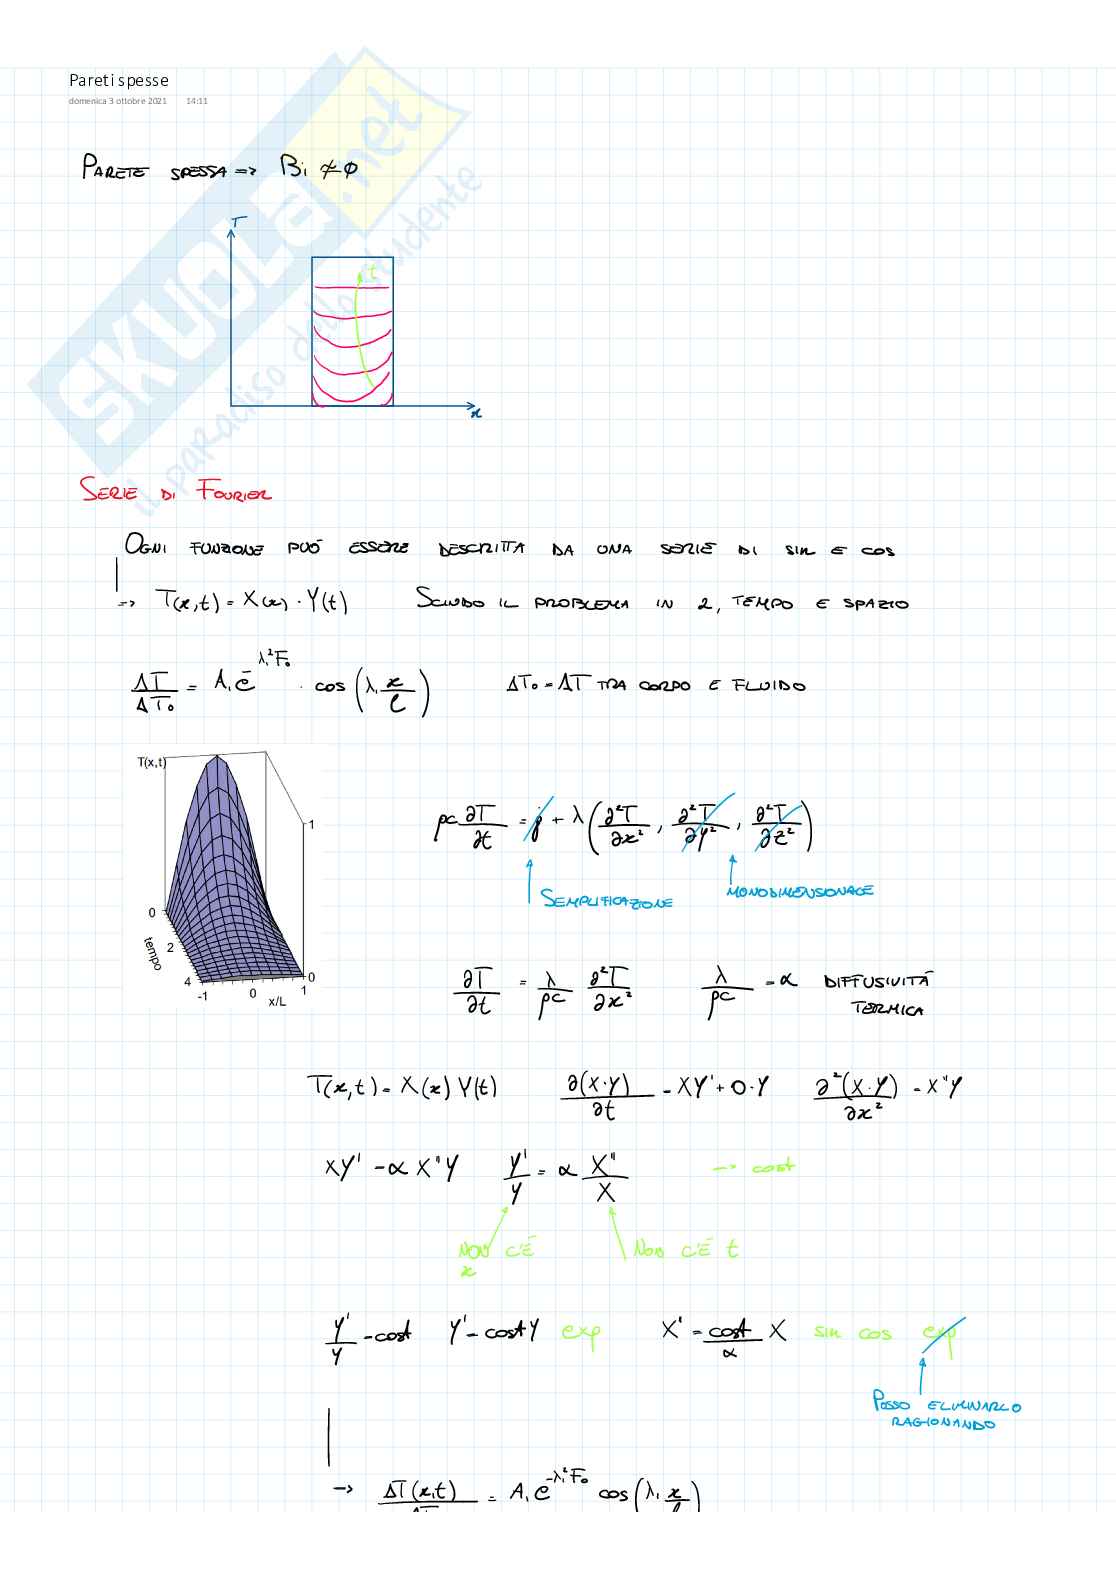 Pareti spesse
domenica 3 ottobre 2021 14:11
PARETE SPESSA => Bi ≠ 0
T
t
x
SERIE DI FOURIER
OGNI FUNZIONE PUÒ ESSERE DESCRITTA DA UNA SERIE DI sin E cos
=> T(x,t) = X(x) · Y(t) SCINDO IL PROBLEMA IN 2, TEMPO E SPAZIO
ΔT/ΔT₀ = A₁ e^-λ₁²F₀ · cos(λ₁ x/l) ΔT₀ = ΔT TRA CORPO E FLUIDO
T(x,t)
1
0
tempo
2
4
-1
0
1
0
x/L
ρc ∂T/∂t = q̇ + λ(∂²T/∂x², ∂²T/∂y², ∂²T/∂z²)
SEMPLIFICAZIONE
MONODIMENSIONALE
∂T/∂t = λ/ρc ∂²T/∂x² λ/ρc = α DIFFUSIVITÀ
TERMICA
T(x,t) = X(x) Y(t) ∂(X·Y)/∂t = XY' + 0·Y ∂²(X·Y)/∂x² = X"Y
XY' = α X"Y Y'/Y = α X"/X -> cost
NON C'È
x
NON C'È t
Y'/Y = cost Y' = cost Y exp X' = cost/α X sin cos exp
POSSO ELIMINARLO
RAGIONANDO
-> ΔT(x,t)/ΔT = A₁ e^-λ₁²F₀ cos(λ₁ x/l)
SKUOLA.net
il paradiso dello studente